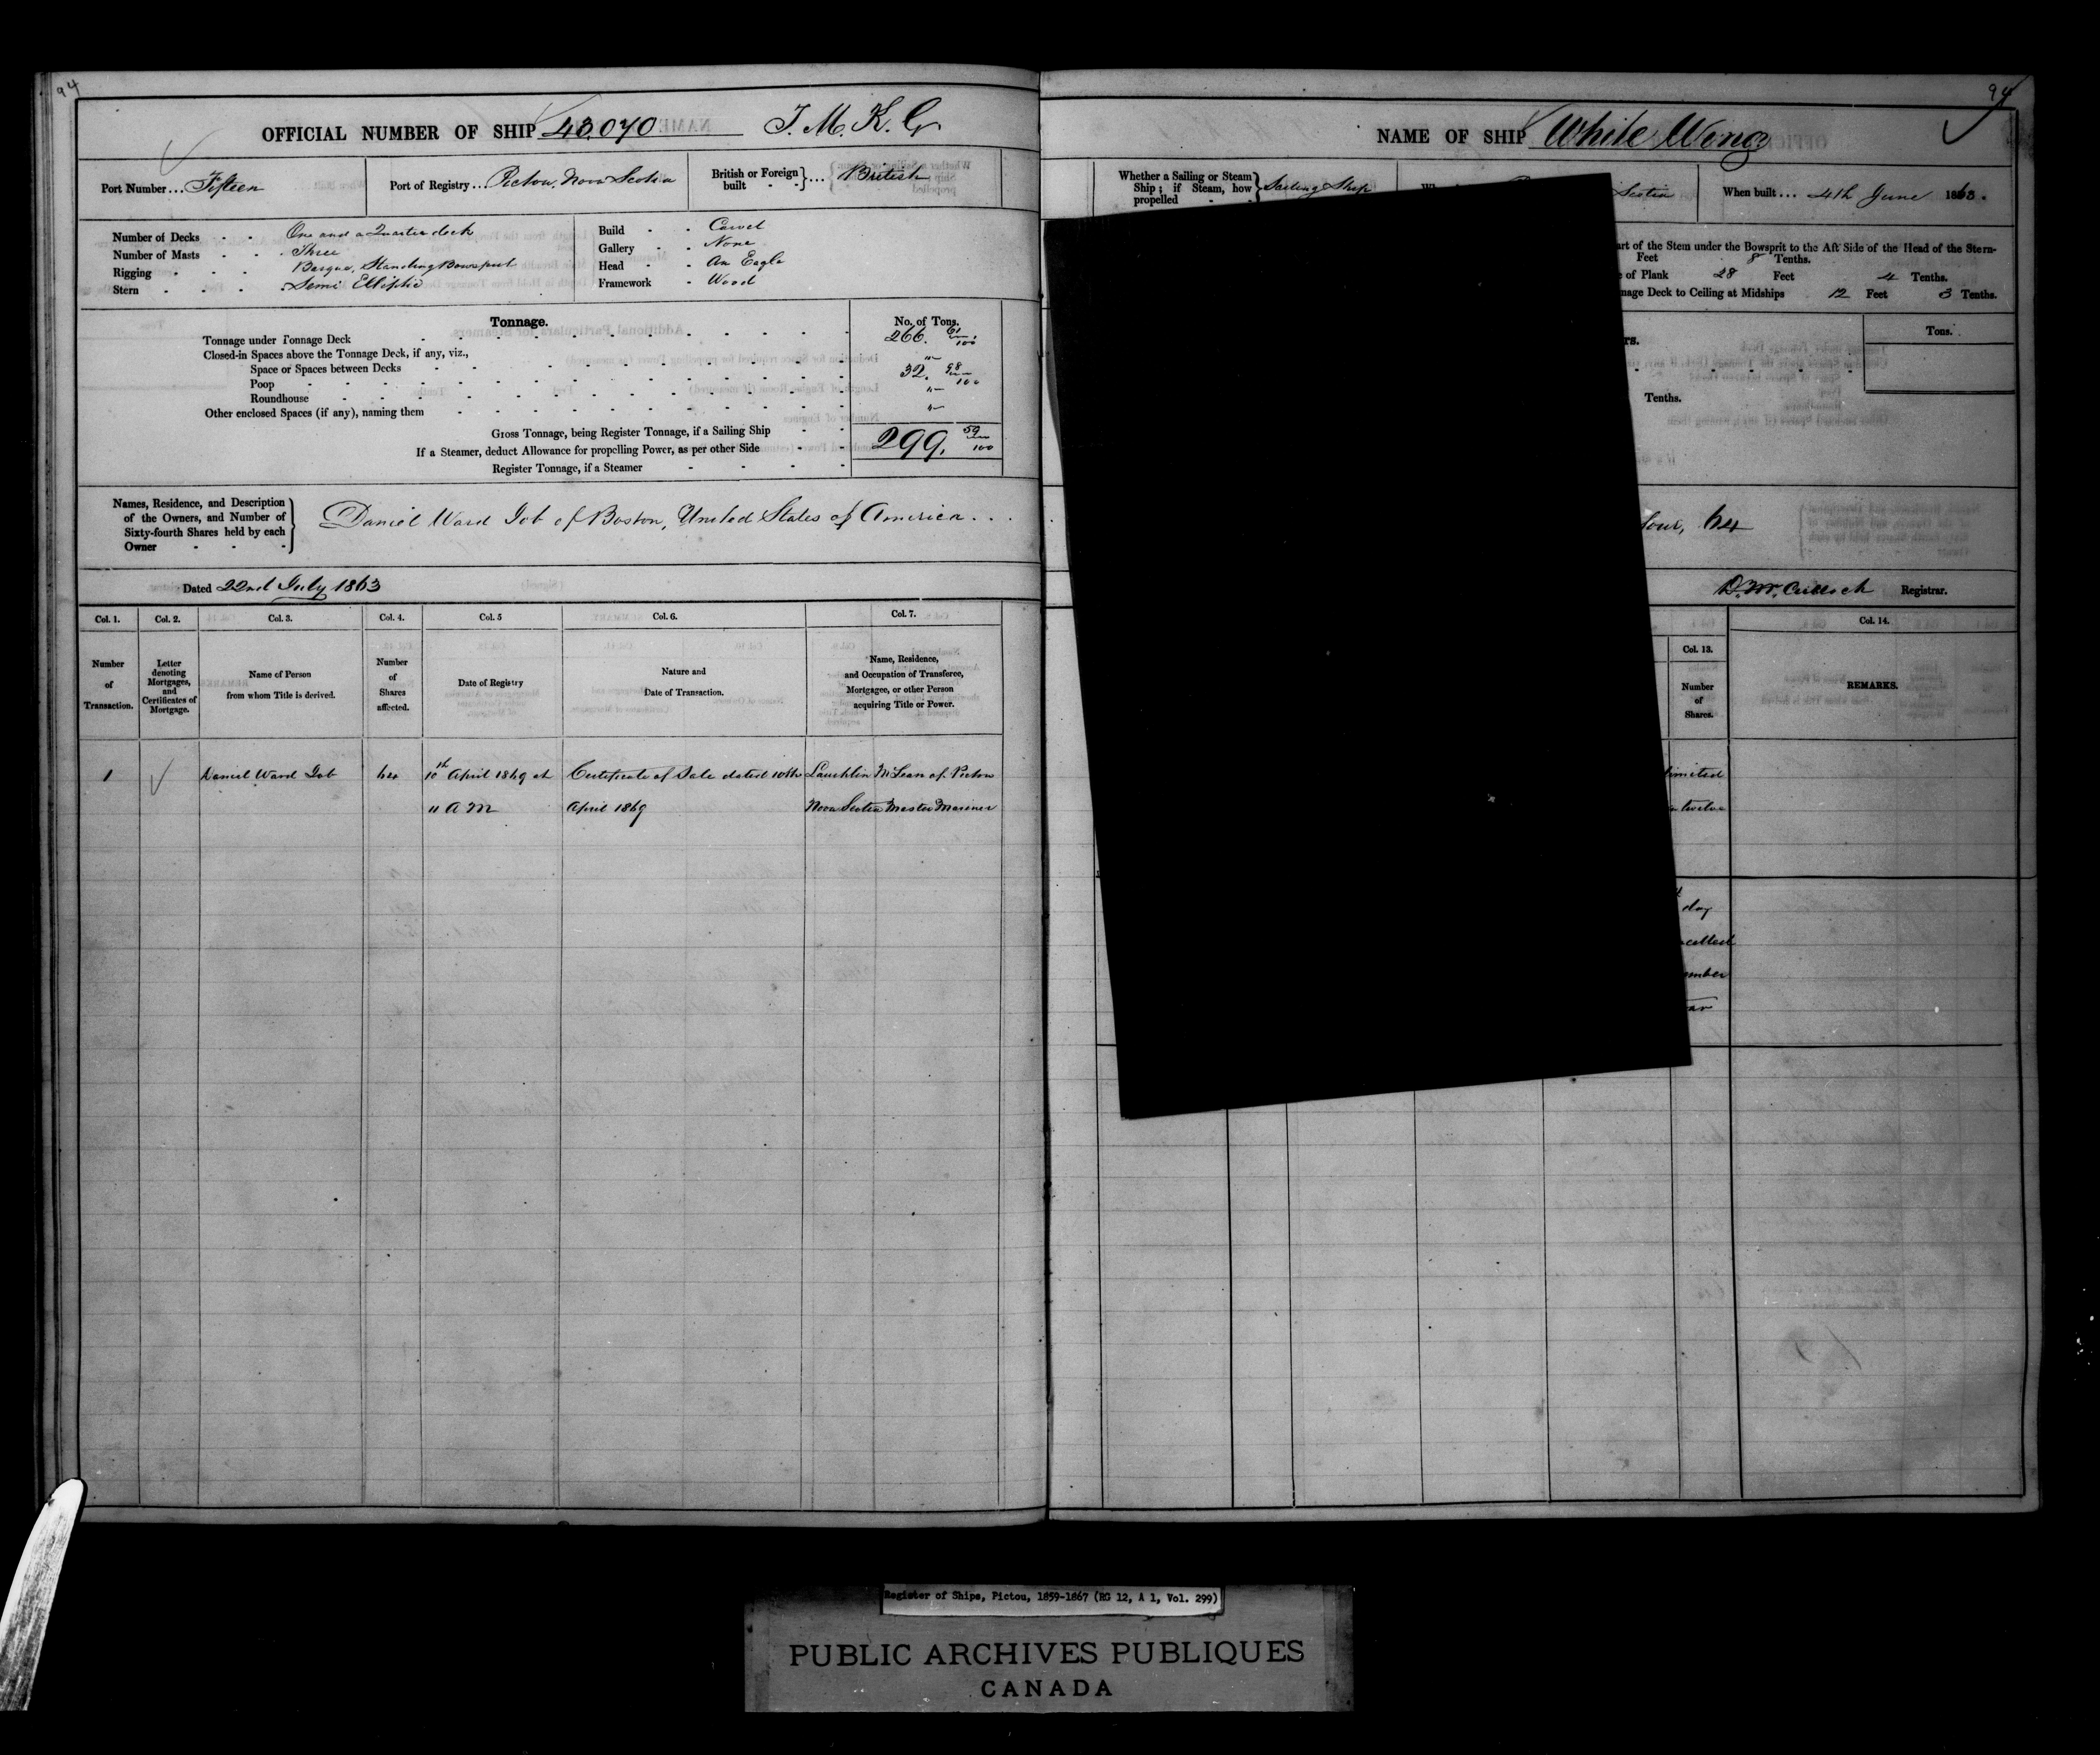 94
OFFICIAL NUMBER OF SHIP 48,070 T. M. K. G
Port Number... Fifteen
Port of Registry... Pictou, Nova Scotia
British or Foreign built } ... British
Number of Decks - - One and a Quarter deck
Number of Masts - - Three
Rigging - - - Barque, Standing Bowsprit
Stern - - - Semi Elliptic
Build - - Carvel
Gallery - - None
Head - - An Eagle
Framework - Wood
Tonnage.
No. of Tons.
Tonnage under Tonnage Deck 266. 61/100
Closed-in Spaces above the Tonnage Deck, if any, viz.,
Space or Spaces between Decks "
Poop 32. 98/100
Roundhouse "
Other enclosed Spaces (if any), naming them "
Gross Tonnage, being Register Tonnage, if a Sailing Ship 299. 59/100
If a Steamer, deduct Allowance for propelling Power, as per other Side
Register Tonnage, if a Steamer
Names, Residence, and Description
of the Owners, and Number of
Sixty-fourth Shares held by each
Owner
Daniel Ward Job of Boston, United States of America...
Dated 22nd July 1863
Col. 1.
Col. 2.
Col. 3.
Col. 4.
Col. 5
Col. 6.
Col. 7.
Number of Transaction.
Letter denoting Mortgages, and Certificates of Mortgage.
Name of Person from whom Title is derived.
Number of Shares affected.
Date of Registry
Nature and Date of Transaction.
Name, Residence, and Occupation of Transferee, Mortgagee, or other Person acquiring Title or Power.
1 Daniel Ward Job 64 10th April 1869 at Certificate of Sale dated 10th Lauchlin McLean of Pictou
11 A M April 1869 Nova Scotia Master Mariner
94
NAME OF SHIP White Wing
Whether a Sailing or Steam Ship; if Steam, how propelled } Sailing Ship
Scotia
When built... 4th June 1863.
art of the Stem under the Bowsprit to the Aft Side of the Head of the Stern-
Feet 8 Tenths.
of Plank 28 Feet 4 Tenths.
nage Deck to Ceiling at Midships 12 Feet 3 Tenths.
rs.
Tons.
Tenths.
four, 64
D. McCulloch Registrar.
Col. 13.
Col. 14.
Number of Shares.
REMARKS.
limited
twelve
day
ncelled
ember
Register of Ships, Pictou, 1859-1867 (RG 12, A 1, Vol. 299)
PUBLIC ARCHIVES PUBLIQUES
CANADA